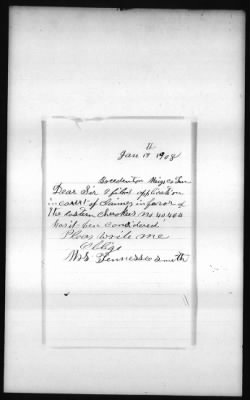 11
Jan 17 1908
Meigs Co Tenn
Dear Sir I filed application
in corert of claimes in favor of
the eastern cherokees No 40,464
has it ben concidered
Pleas write me
Oblige
Mrs Tennessee Smith